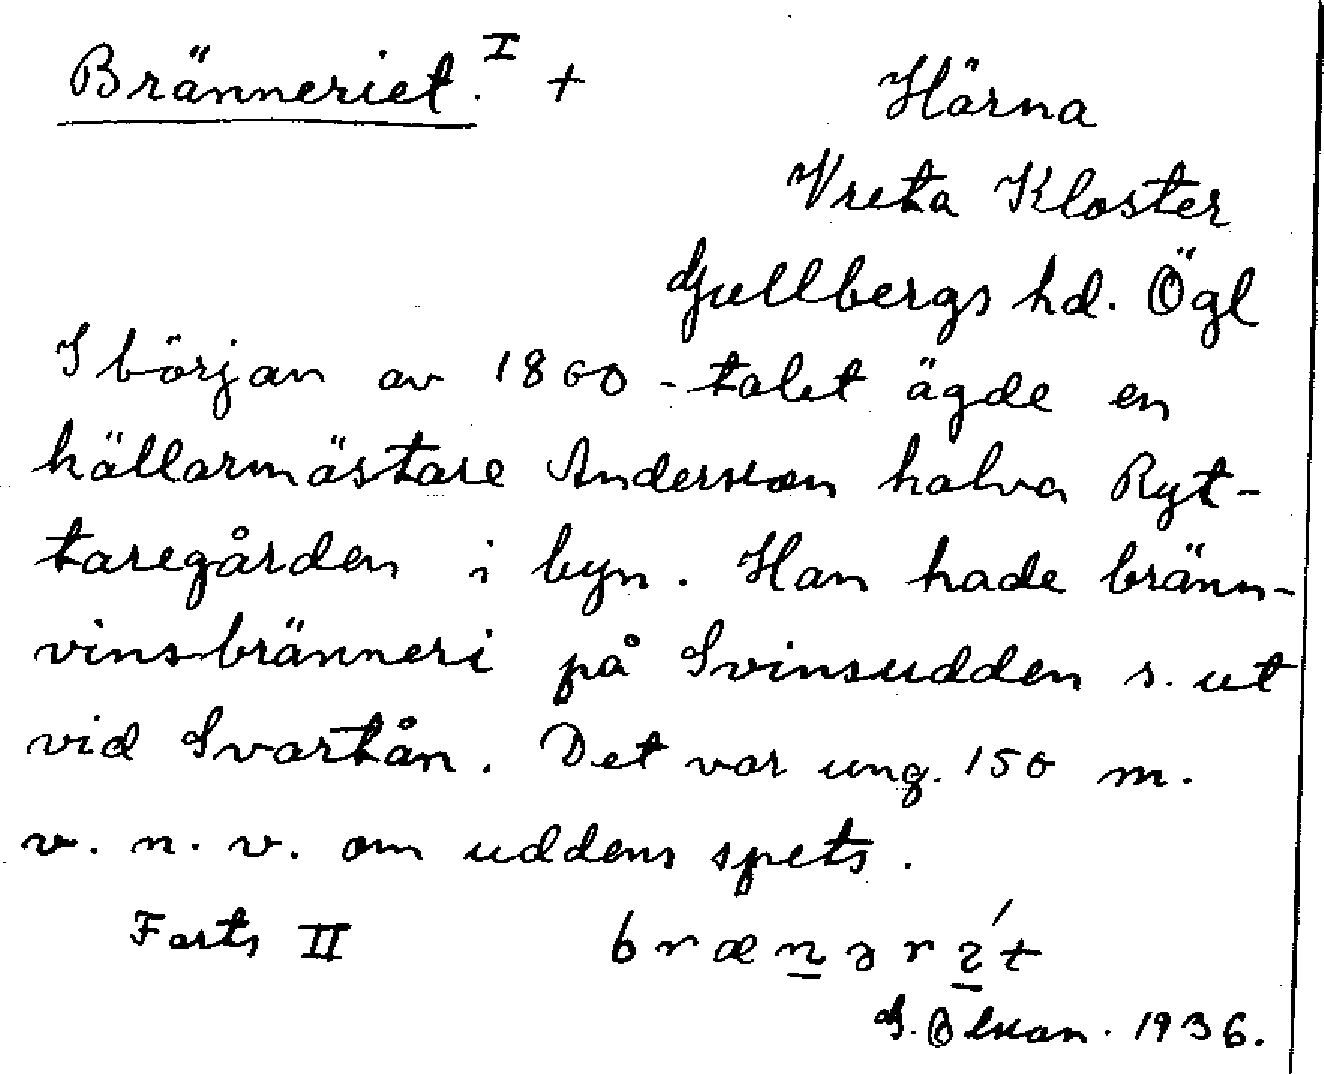 Bränneriet. I +
Härna
Vreta Kloster
Gullbergs hd. Ögl
I början av 1800-talet ägde en
källarmästare Andersson halva Ryt-
taregården i byn. Han hade bränn-
vinsbränneri på Svinsudden s. ut
vid Svartån. Det var ung. 150 m.
v. n. v. om uddens spets.
Forts II brænərít
G. Olsson. 1936.